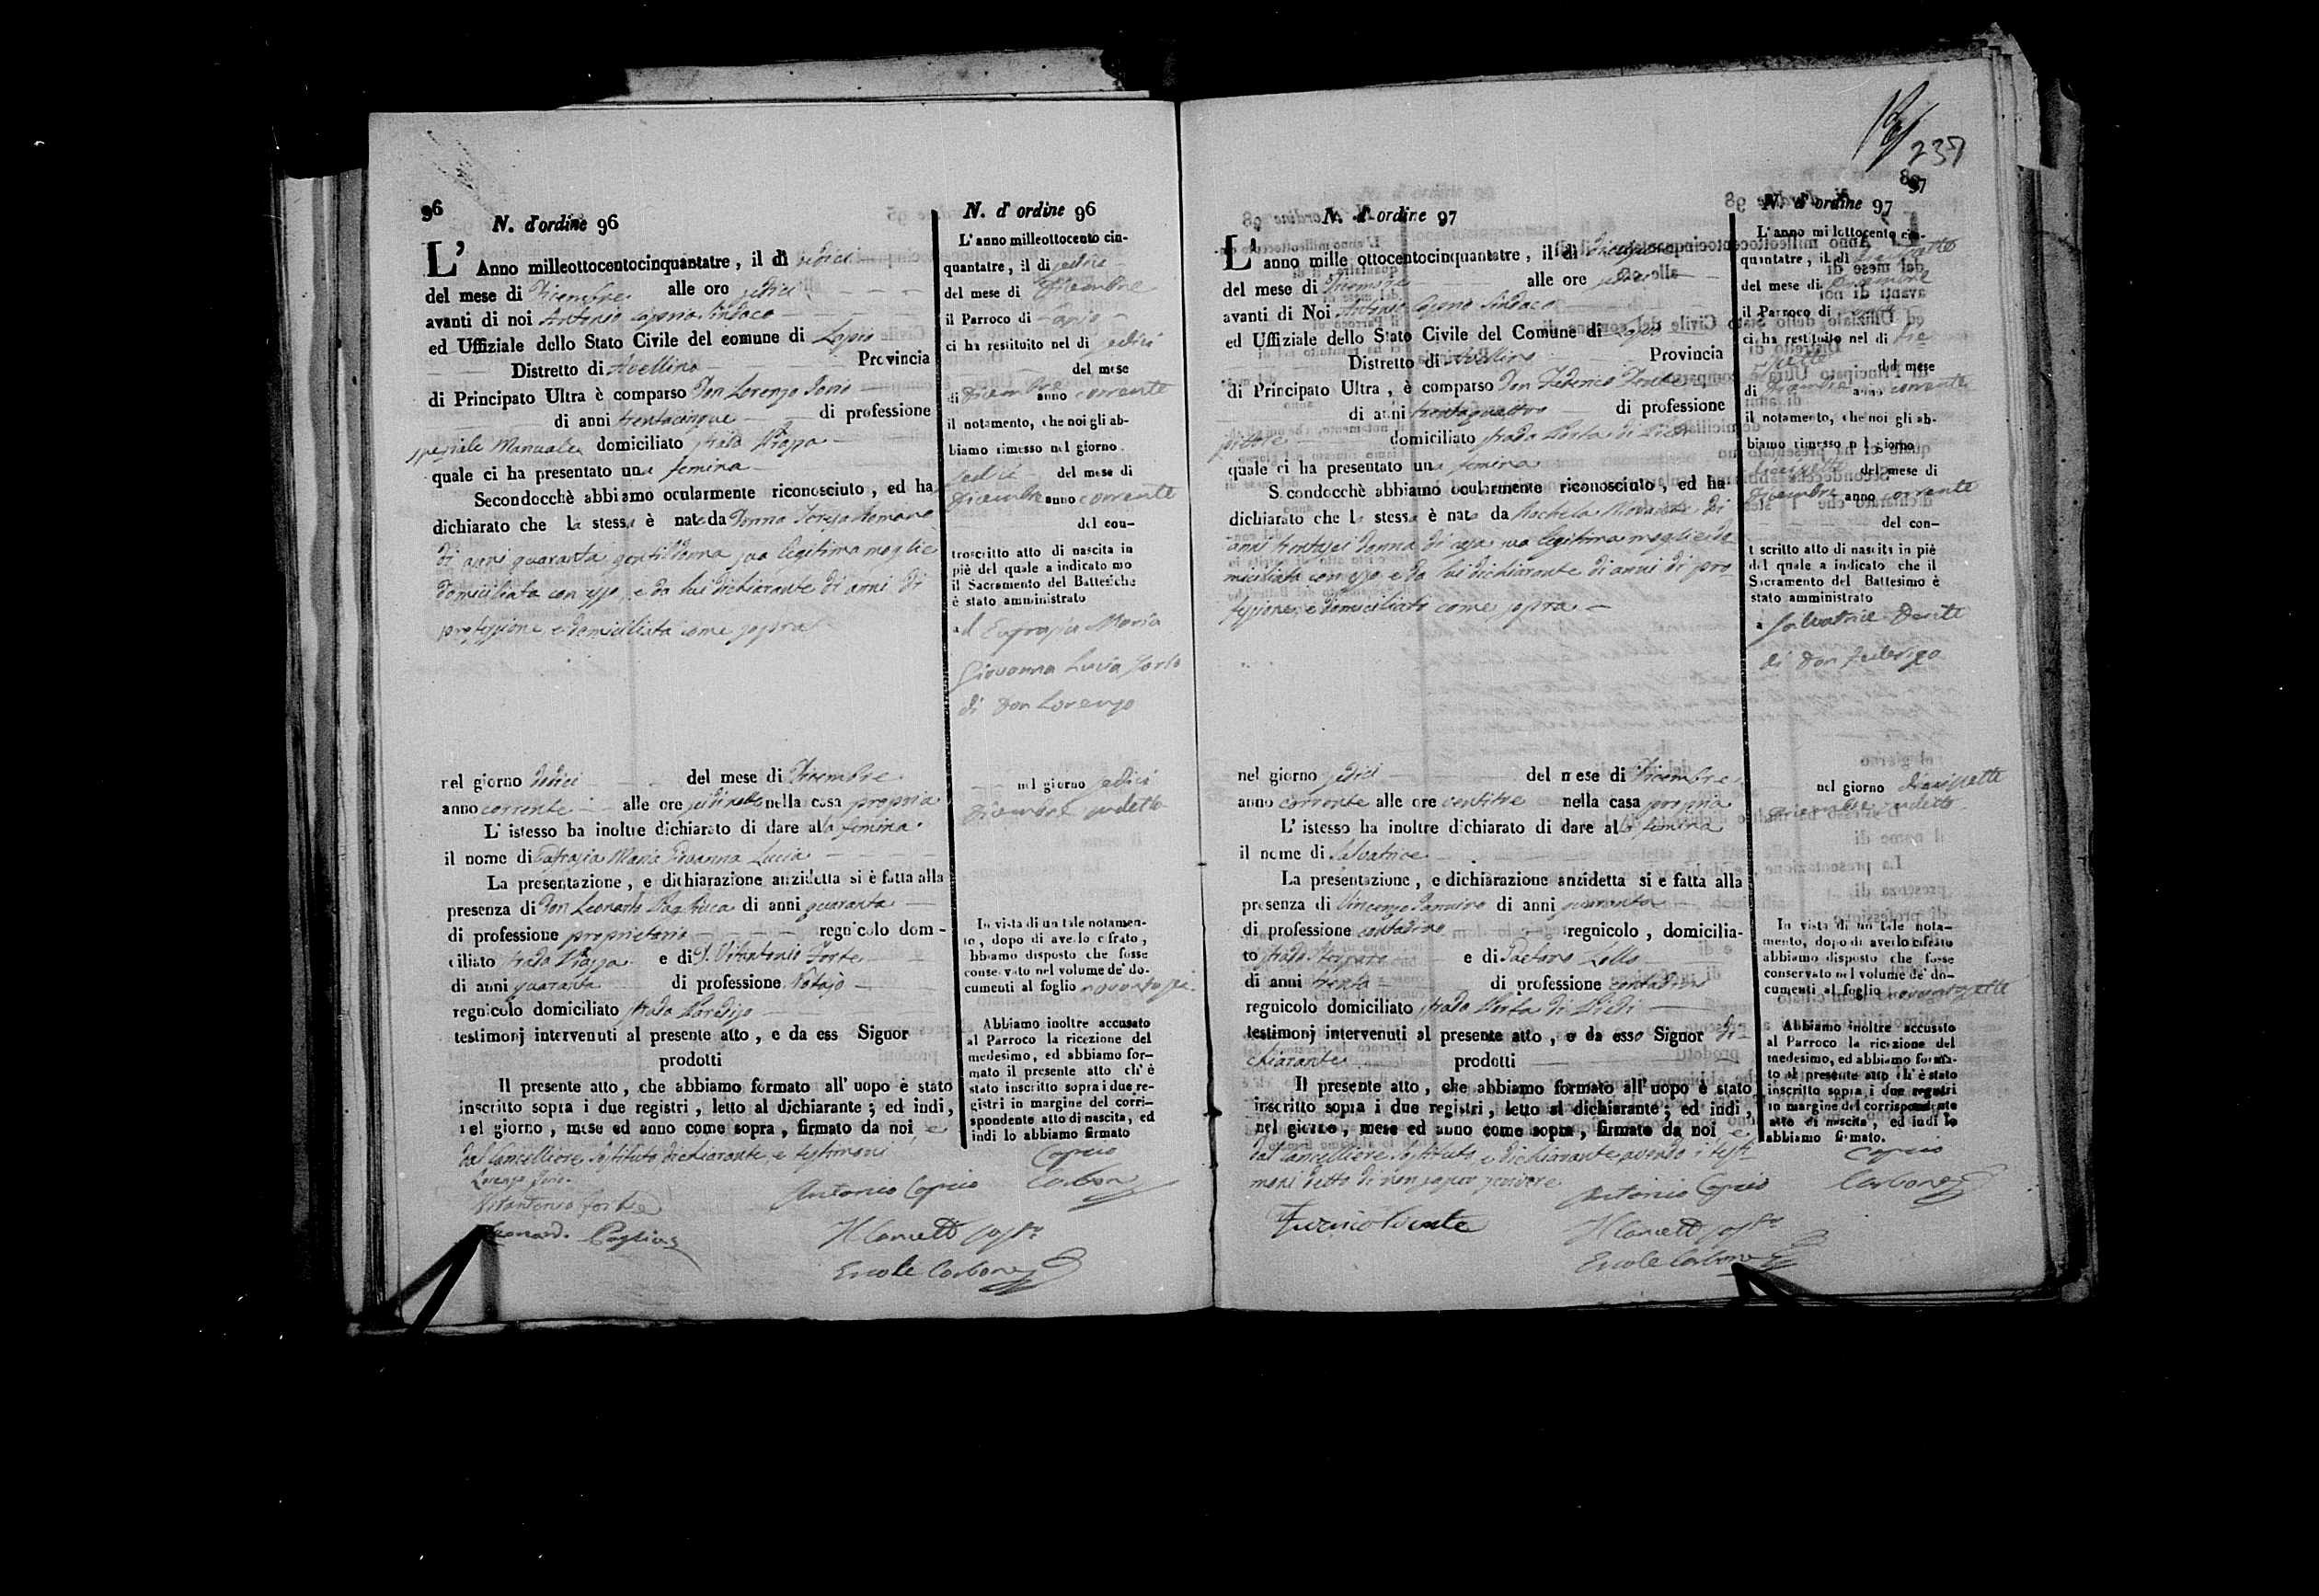 96
N. d'ordine 96
L' Anno milleottocentocinquantatre, il di sedici
del mese di Dicembre alle ore sedici
avanti di noi Antonio Caprio Sindaco
ed Uffiziale dello Stato Civile del comune di Lapio
Distretto di Avellino Provincia
di Principato Ultra è comparso Don Lorenzo
di anni trentacinque di professione
speziale Manuale domiciliato strada Piazza
quale ci ha presentato una femina
Secondocchè abbiamo ocularmente riconosciuto, ed ha
dichiarato che la stessa è nata da Donna Teresa Romano
di anni quaranta gentildonna sua legitima moglie
domiciliata con esso, e da lui dichiarante di anni di
professione, e domiciliata come sopra
nel giorno del mese di Dicembre
anno corrente alle ore nella casa propria
L' istesso ha inoltre dichiarato di dare alla femina
il nome di Eufrasia Maria Giovanna Lucia
La presentazione, e dichiarazione anzidetta si è fatta alla
presenza di Don Leonardo di anni quaranta
di professione proprietario regnicolo dom-
ciliato strada Piazza e di D. Vitantonio Forte
di anni quaranta di professione Notajo
regnicolo domiciliato strada Paradiso
testimonj intervenuti al presente atto, e da ess Signor
prodotti
Il presente atto, che abbiamo formato all' uopo è stato
inscritto sopra i due registri, letto al dichiarante; ed indi,
nel giorno, mese ed anno come sopra, firmato da noi, e
dal Cancelliere Sostituto, dichiarante, e testimoni
Lorenzo
Vitantonio Forte
Antonio Caprio
Il Cancell Sost°
Ercole Carbone
N. d' ordine 96
L' anno milleottocento cin-
quantatre, il di sedici
del mese di Dicembre
il Parroco di Lapio
ci ha restituito nel di sedici
del mese
di Dicembre anno corrente
il notamento, che noi gli ab-
biamo rimesso nel giorno
sedici del mese di
Dicembre anno corrente
del con-
troscritto atto di nascita in
piè del quale a indicato mo
il Sacramento del Battesiche
è stato amministrato
ad Eufrasia Maria
Giovanna Lucia
di Don Lorenzo
nel giorno sedici
Dicembre sudetto
In vista di un tale notamen-
to, dopo di averlo cifrato,
bbiamo disposto che fosse
conservato nel volume de' do-
cumenti al foglio novantasei
Abbiamo inoltre accusato
al Parroco la ricezione del
medesimo, ed abbiamo for-
mato il presente atto ch' è
stato inscritto sopra i due re-
gistri in margine del corri-
spondente atto di nascita, ed
indi lo abbiamo firmato
Caprio
Carbone
237
97
N. d' ordine 97
L' anno mille ottocentocinquantatre, il di diecisette
del mese di Dicembre alle ore
avanti di Noi Antonio Caprio Sindaco
ed Uffiziale dello Stato Civile del Comune di Lapio
Distretto di Avellino Provincia
di Principato Ultra, è comparso Don Federico
di anni trentaquattro di professione
domiciliato strada Porta di Piedi
quale ci ha presentato una femina
Secondocchè abbiamo ocularmente riconosciuto, ed ha
dichiarato che la stessa è nata da Rachela di
anni trentasei donna di casa sua legitima moglie do
miciliata con esso, e da lui dichiarante di anni di pro-
fessione, e domiciliato come sopra
nel giorno sedici del mese di Dicembre
anno corrente alle ore ventitre nella casa propria
L' istesso ha inoltre dichiarato di dare alla femina
il nome di Salvatrice
La presentazione, e dichiarazione anzidetta si e fatta alla
presenza di Vincenzo di anni quaranta
di professione contadino regnicolo, domicilia-
to strada e di Lello
di anni trenta di professione contadino
regnicolo domiciliato strada Porta di Piedi
testimonj intervenuti al presente atto, e da esso Signor di-
chiarante prodotti
Il presente atto, che abbiamo formato all' uopo è stato
inscritto sopra i due registri, letto al dichiarante; ed indi,
nel giorno, mese ed anno come sopra, firmato da noi, e
dal Cancelliere Sostituto, e dichiarante avendo i testi-
moni detto di non saper scrivere
Antonio Caprio
Il Cancell Sost°
Ercole Carbone
N. d' ordine 97
L' anno millottocento cin-
quantatre, il di diecisette
del mese di Dicembre
il Parroco di Lapio
ci ha restituito nel di die
cisette del mese
di Dicembre anno corrente
il notamento, che noi gli ab-
biamo rimesso nel giorno
diecisette del mese di
Dicembre anno corrente
del con-
t scritto atto di nascita in piè
del quale a indicato che il
Sacramento del Battesimo è
stato amministrato
a Salvatrice
di Don Federigo
nel giorno diecisette
Dicembre sudetto
In vista di un tale nota-
mento, dopo di averlo cifrato
abbiamo disposto che fosse
conservato nel volume de' do-
cumenti al foglio novantasette
Abbiamo inoltre accusato
al Parroco la ricezione del
medesimo, ed abbiamo forma-
to il presente atto ch' è stato
inscritto sopra i due registri
in margine del corrispondente
atto di nascita, ed indi lo
abbiamo firmato.
Caprio
Carbone